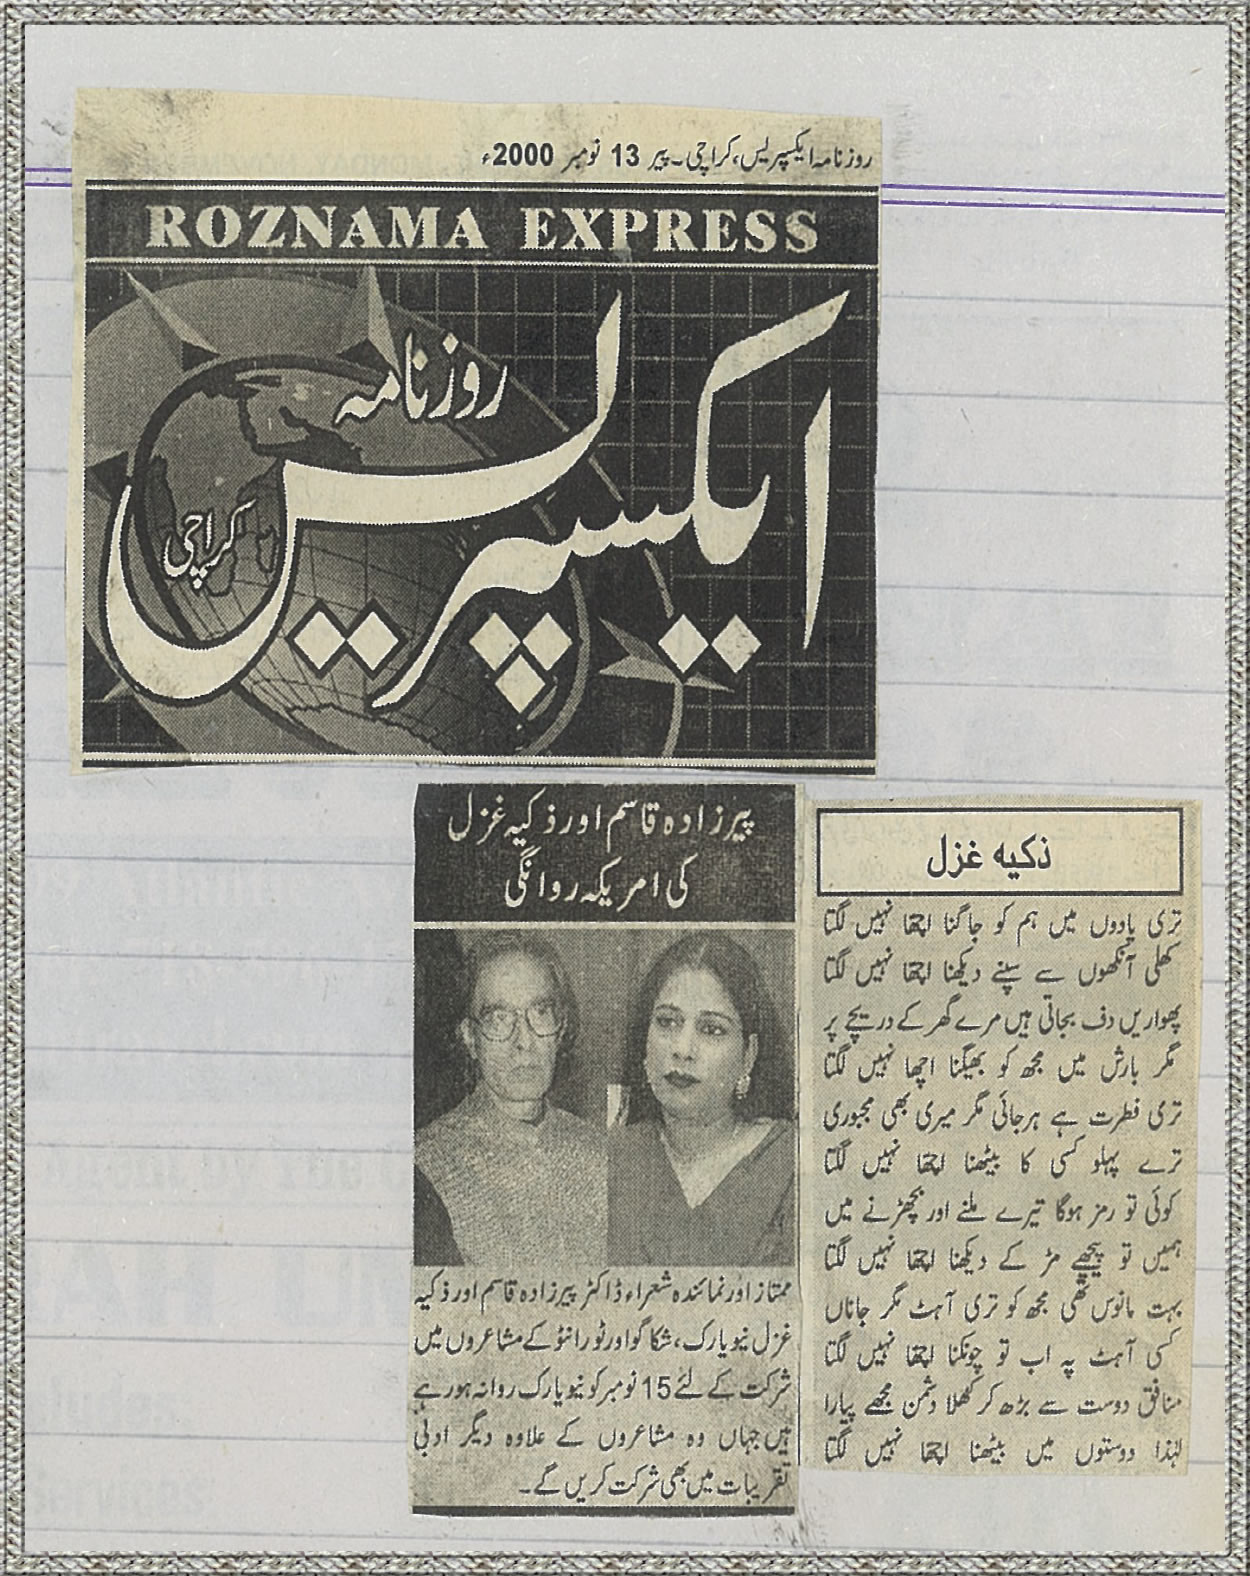 روزنامہ ایکسپریس، کراچی۔ پیر 13 نومبر 2000ء
ROZNAMA EXPRESS
روزنامہ
ایکسپریس
کراچی
پیرزادہ قاسم اور ذکیہ غزل
کی امریکہ روانگی
ممتاز اور نمائندہ شعراء ڈاکٹر پیرزادہ قاسم اور ذکیہ
غزل نیویارک، شکاگو اور ٹورانٹو کے مشاعروں میں
شرکت کے لئے 15 نومبر کو نیویارک روانہ ہو رہے
ہیں جہاں وہ مشاعروں کے علاوہ دیگر ادبی
تقریبات میں بھی شرکت کریں گے۔
ذکیہ غزل
تری یادوں میں ہم کو جاگنا اچھا نہیں لگتا
کھلی آنکھوں سے سپنے دیکھنا اچھا نہیں لگتا
پھواریں دف بجاتی ہیں مرے گھر کے دریچے پر
مگر بارش میں مجھ کو بھیگنا اچھا نہیں لگتا
تری فطرت ہے ہرجائی مگر میری بھی مجبوری
ترے پہلو کسی کا بیٹھنا اچھا نہیں لگتا
کوئی تو رمز ہوگا تیرے ملنے اور بچھڑنے میں
ہمیں تو پیچھے مڑ کے دیکھنا اچھا نہیں لگتا
بہت مانوس تھی مجھ کو تری آہٹ مگر جاناں
کسی آہٹ پہ اب تو چونکنا اچھا نہیں لگتا
منافق دوست سے بڑھ کر کھلا دشمن مجھے پیارا
لہٰذا دوستوں میں بیٹھنا اچھا نہیں لگتا